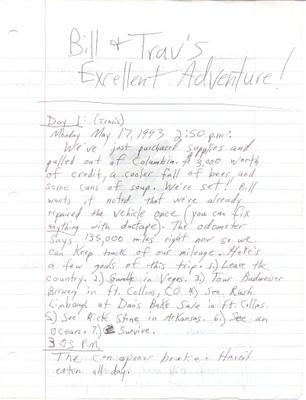 Bill & Trav's
Excellent Adventure!
Day 1: (Travis)
Monday May 17, 1993 2:50 p.m.:
We've just purchased supplies and
pulled out of Columbia. $3,000 worth
of credit, a cooler full of beer, and
some cans of soup. We're set! Bill
wants it noted that we've already
repaired the vehicle once (you can fix
anything with ductape). The odometer
says 135,000 miles right now so we
can keep track of our mileage. Here's
a few goals of this trip. 1.) Leave the
country. 2.) Gamble in Vegas. 3.) Tour Budweiser
Birwery in Ft. Collins, CO. 4.) See Rush
Limbaugh at Dan's Bake Sale in Ft. Collins.
5.) See Rick Stone in Arkansas. 6.) See an
Ocean. 7.) Survive.
3:03 P.M.
The can opener broke. Haven't
eaten all day.